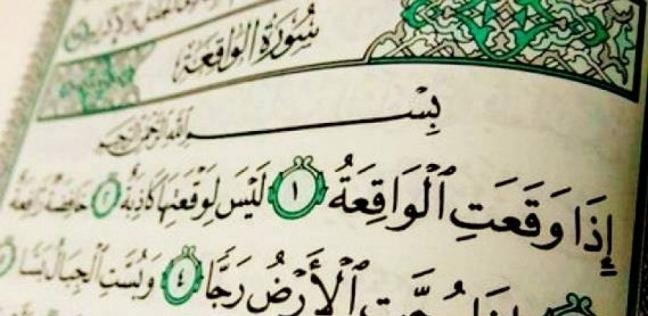 سُورَةُ الوَاقِعَةِ
بِسْمِ اللَّهِ الرَّحْمَٰنِ الرَّحِيمِ
إِذَا وَقَعَتِ ٱلْوَاقِعَةُ ١ لَيْسَ لِوَقْعَتِهَا كَاذِبَةٌ ٢ خَافِضَةٌ رَّافِعَةٌ
ٱلْأَرْضُ رَجًّا ٤ وَبُسَّتِ ٱلْجِبَالُ بَسًّا